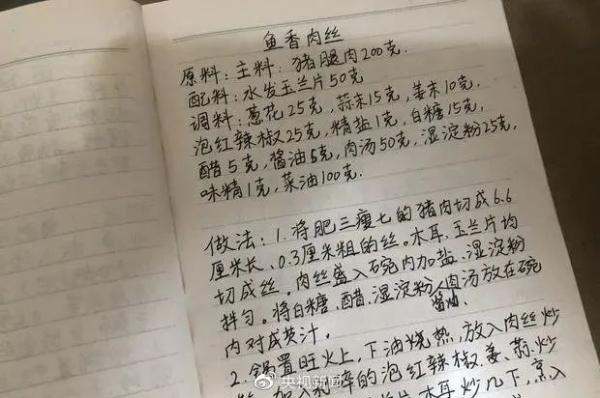 鱼香肉丝
原料:主料:猪腿肉200克.
配料:水发玉兰片50克
调料:葱花25克,蒜末15克,姜末10克,
泡红辣椒25克,精盐1克,白糖15克,
醋5克,酱油5克,肉汤50克,湿淀粉25克,
味精1克,菜油100克.
做法:1.将肥三瘦七的猪肉切成6.6
厘米长、0.3厘米粗的丝。木耳、玉兰片均
切成丝。肉丝盛入碗内加盐、湿淀粉
拌匀。将白糖、醋、湿淀粉、酱油、肉汤放在碗
内对成芡汁.
2.锅置旺火上,下油烧热,放入肉丝炒
加入剁碎的泡红辣椒、姜、蒜炒
木耳炒几下,烹入
央视新闻